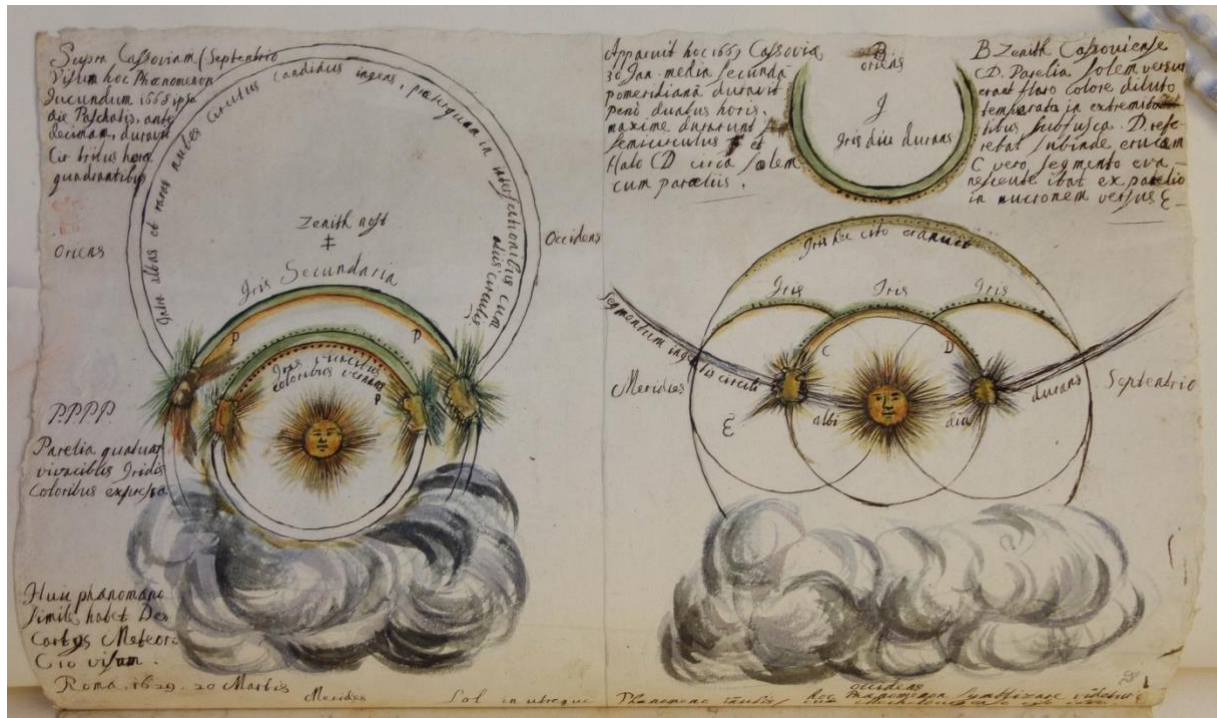 Supra Cassoviam (Septentrio
Visum hoc Phænomenon
Jucundum 1668 ipsa
die Paschatis, ante
decimam, duravit
Cir tribus horæ
quadrantibus
Oriens
Intra albas et raras nubes circulus candidus ingens, præterquam in intersectionibus cum aliis circulis
Zenith nost
Occidens
Iris Secundaria
P P
Iris vivacibus
coloribus vernans
P
P.P.P.P.
Parelia quatuor
vivacibus Iridis
Coloribus expressa
Huic phænomeno
simile habet Des
Cartes Meteor:
C 10 visum.
Roma. 1629. 20 Martis
Meridies
Sol in utroque Phænomeno
Apparuit hoc 1669 Cassoviæ
30 Jan. media secunda
pomeridiana duravit
penè duabus horis,
maxime durarunt
semicirculus et
Halo CD circa solem
cum parœliis.
B
oriens
J
Iris diu durans
B Zenith Cassoviense
CD. Parelia solem versus
erant flavo colore diluto
temperata in extremita
tibus subfusca. D. refe-
rebat subinde crucem
C vero segmento eva-
nescente ibat ex parelio
in mucronem versus E-
Iris hæc cito evanuit
Iris Iris Iris
segmentum ingentis circuli albi diu durans
C D
Meridies
Septentrio
E
occidens
hoc Phænomenon symbolizare videtur